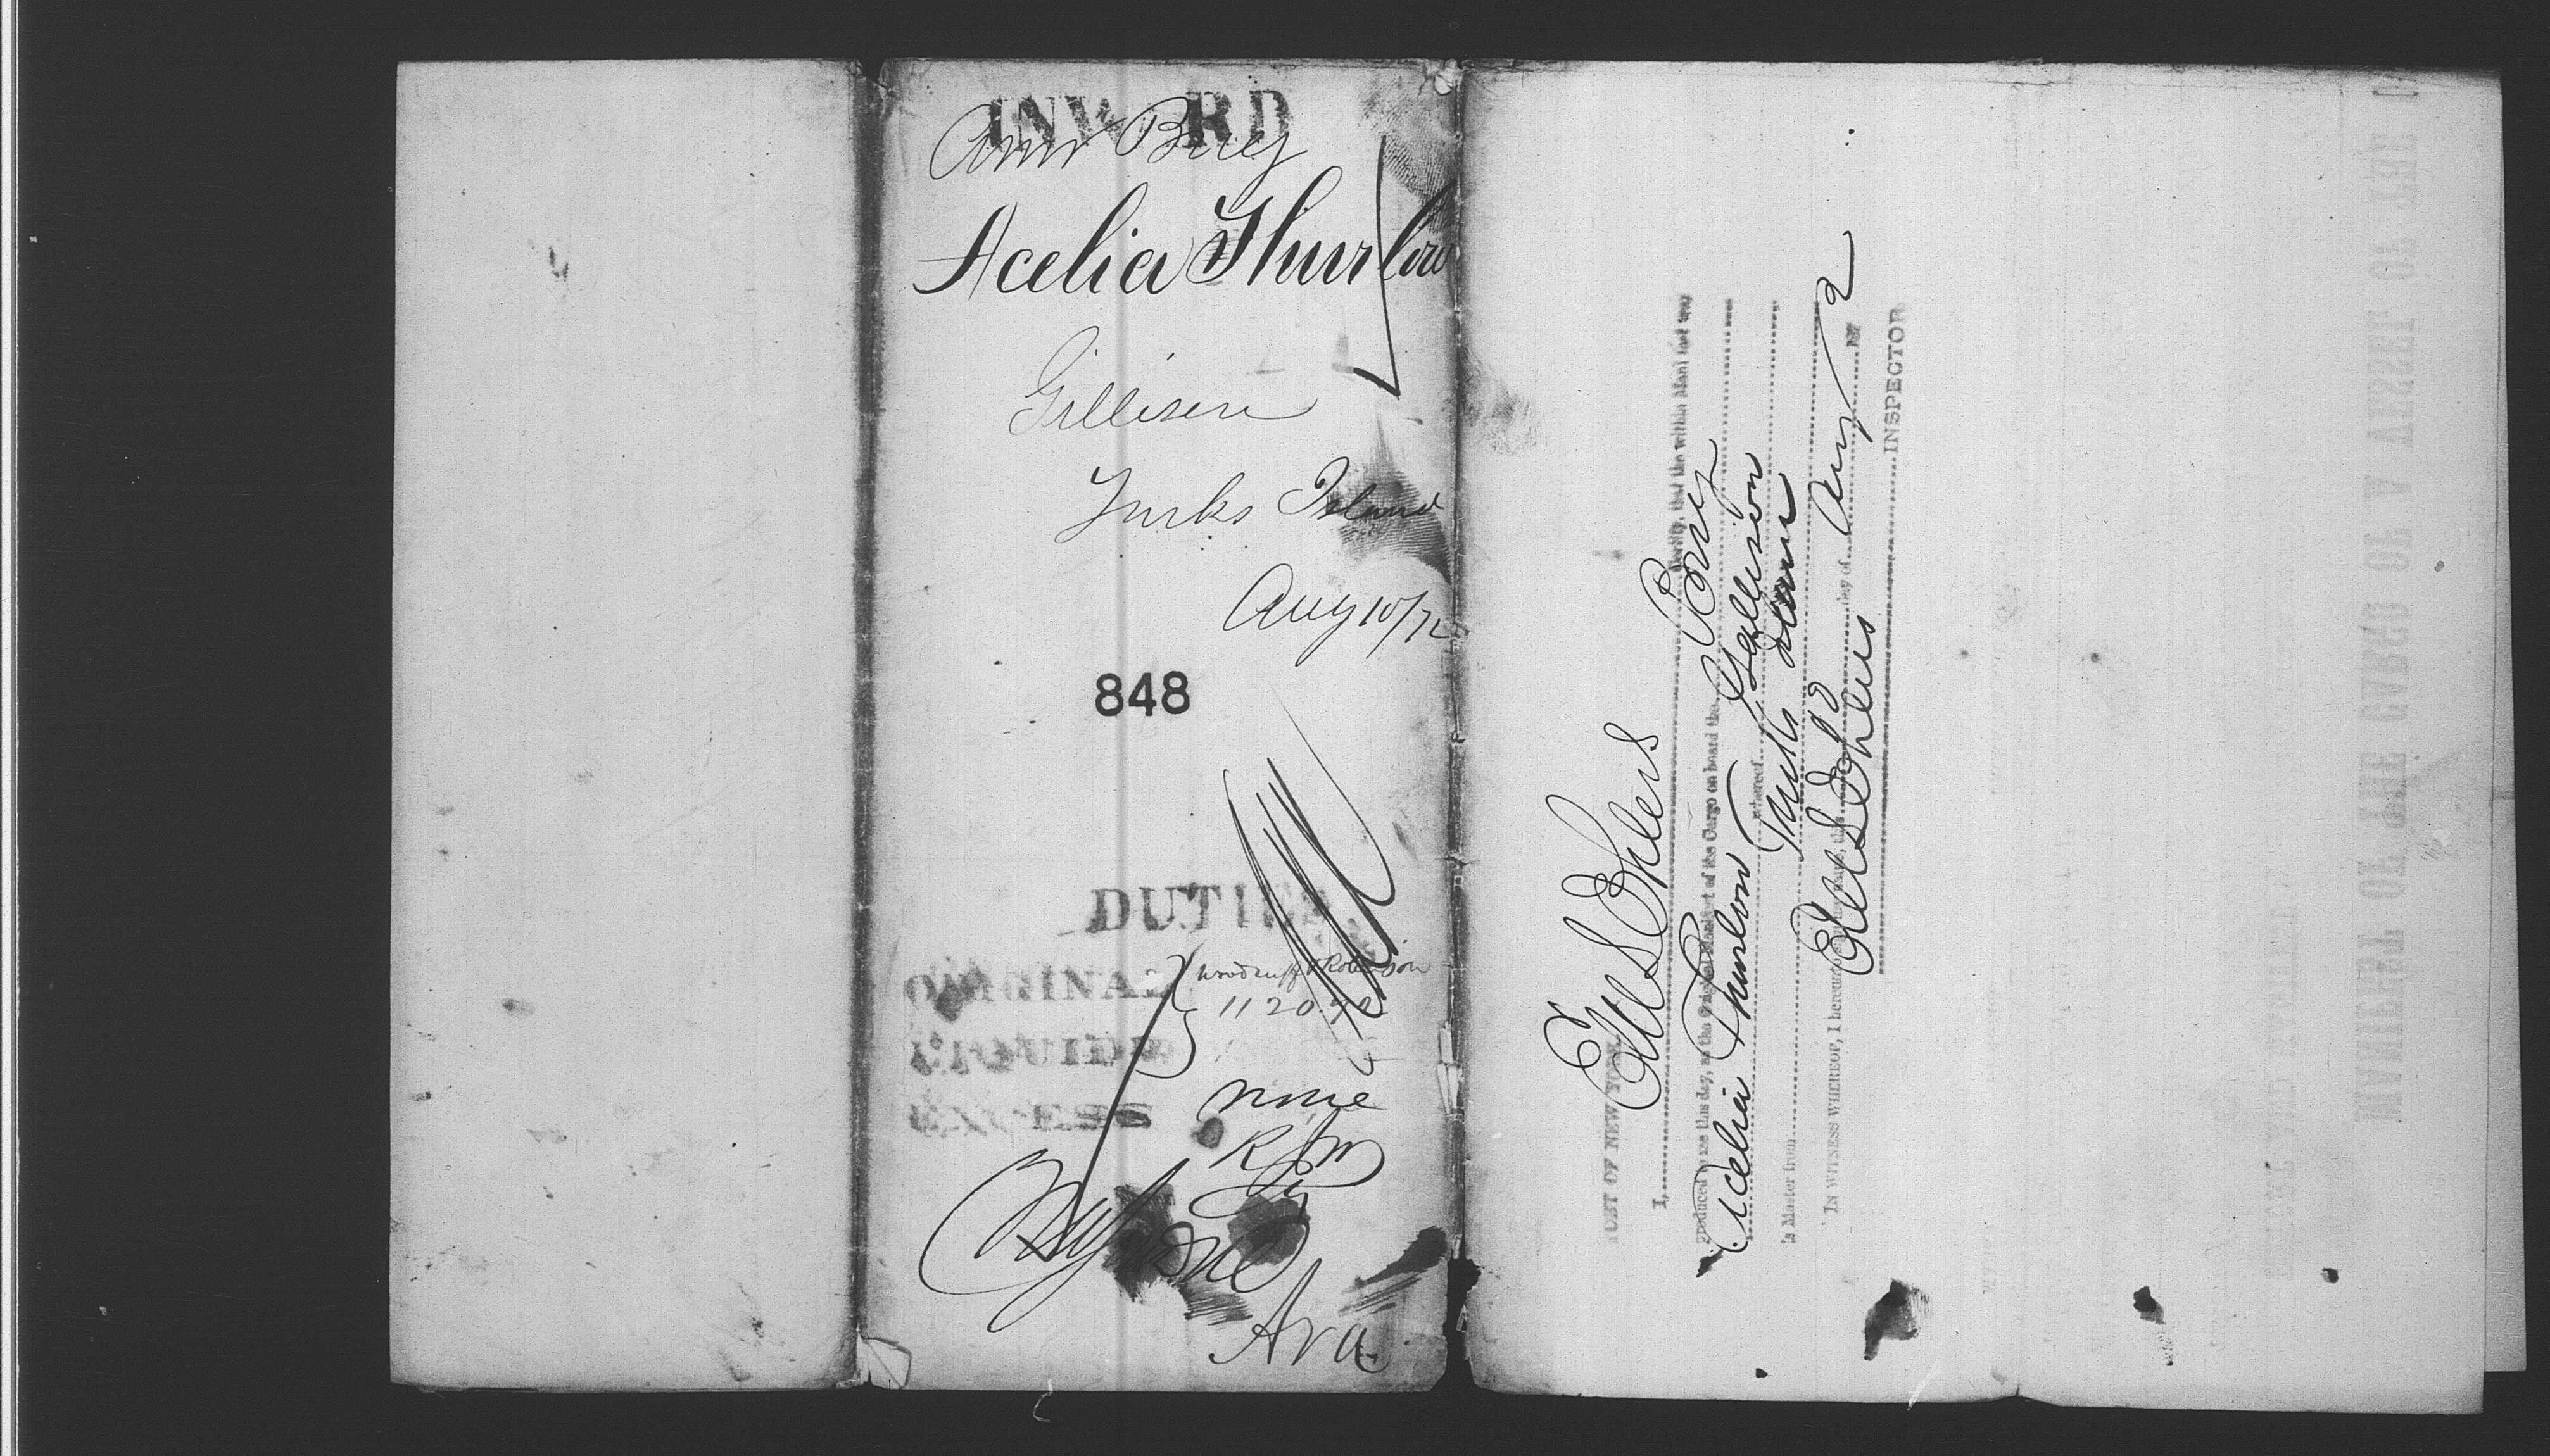 INWARD
Amr Brig
Acelia Thurlow
Gallison
Turks Island
Aug 10/72
848
DUTIES
ORIGINAL
Woodruff & Robinson
1120.72
LIQUID
none
EXCESS
Ava
PORT OF NEW YORK
I, E W S Ehlers Certify, that the within Manifest was
produced to me this day, as the Original Manifest of the Cargo on board the Brig
Acelia Thurlow whereof Gallison
is Master from Turks Island
IN WITNESS WHEREOF, I hereunto 10 day of Aug 187 2
Ehlers
INSPECTOR
MANIFEST OF THE CARGO OF A VESSEL OF THE